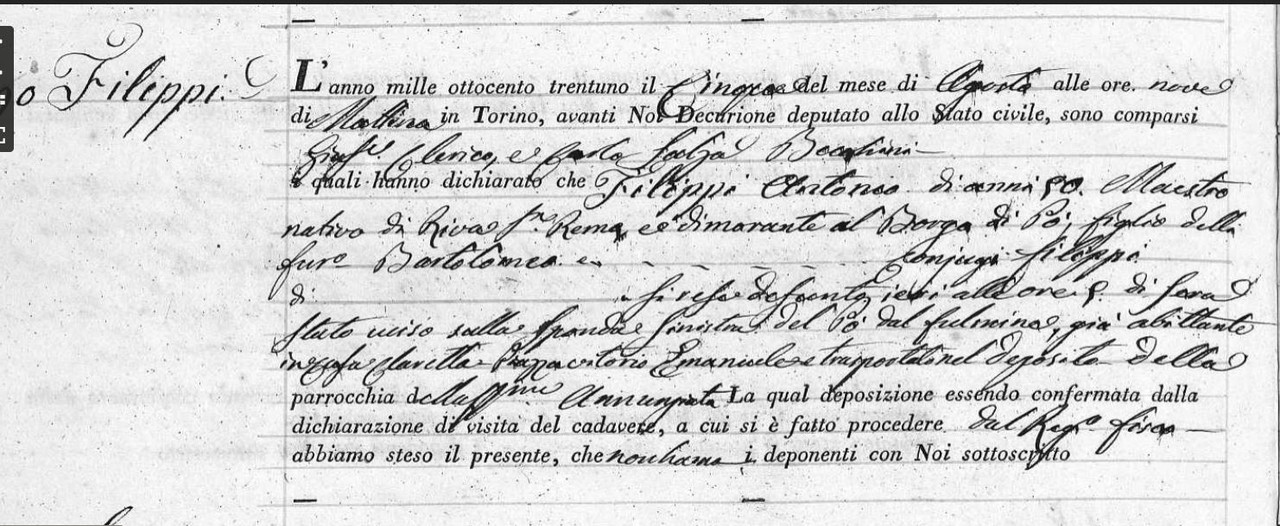 o Filippi.
L'anno mille ottocento trentuno il Cinque del mese di Agosto alle ore. nove
di Mattina in Torino, avanti Noi Decurione deputato allo Stato civile, sono comparsi
Clerico, e Carlo
i quali hanno dichiarato che Filippi Antonio di anni 50. Maestro
nativo di Riva S.n Remo, e dimorante al Borgo di Pò, figlio delli
furo Bartolomeo e conjugi Filippi
di si rese defunto jeri alle ore 8. di sera
stato uciso sulla sponda sinistra del Pò dal fulmine, già abittante
in casa Claretta Piazza Vittorio Emanuele e trasportato nel deposito della
parrocchia della SSma Annunziata La qual deposizione essendo confermata dalla
dichiarazione di visita del cadavere, a cui si è fatto procedere dal Rego fisco
abbiamo steso il presente, che non hanno i deponenti con Noi sottoscritto